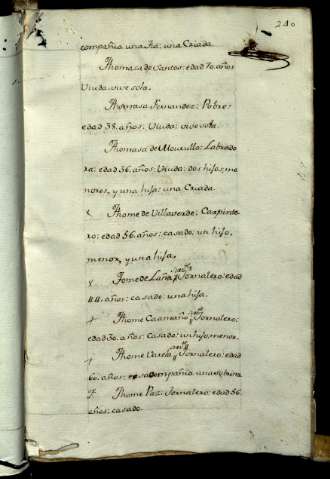 240
compañia una tia: una Criada
Thomasa de Santos: edad 70. años
Viuda: vive sola.
Theresa Fernandez: Pobre:
edad 38. años: Viuda: vive sola.
Thomasa de Mourullo: Labrado
ra: edad 56. años: Viuda: dos hijos, me
nores, y una hija: una Criada
Thome de Villaverde: Carpinte
ro: edad 56. años: casado: un hijo,
menor, y una hija.
Tome de Laña: Jornalero: edad
44. años: casado: una hija.
Thome Caamaño: Jornalero:
edad 30. años: Casado: un hijo, menor.
Thome Varela: Jornalero: edad
60. años: compañia una
Thome Paz: Jornalero: edad 56.
años: casado.